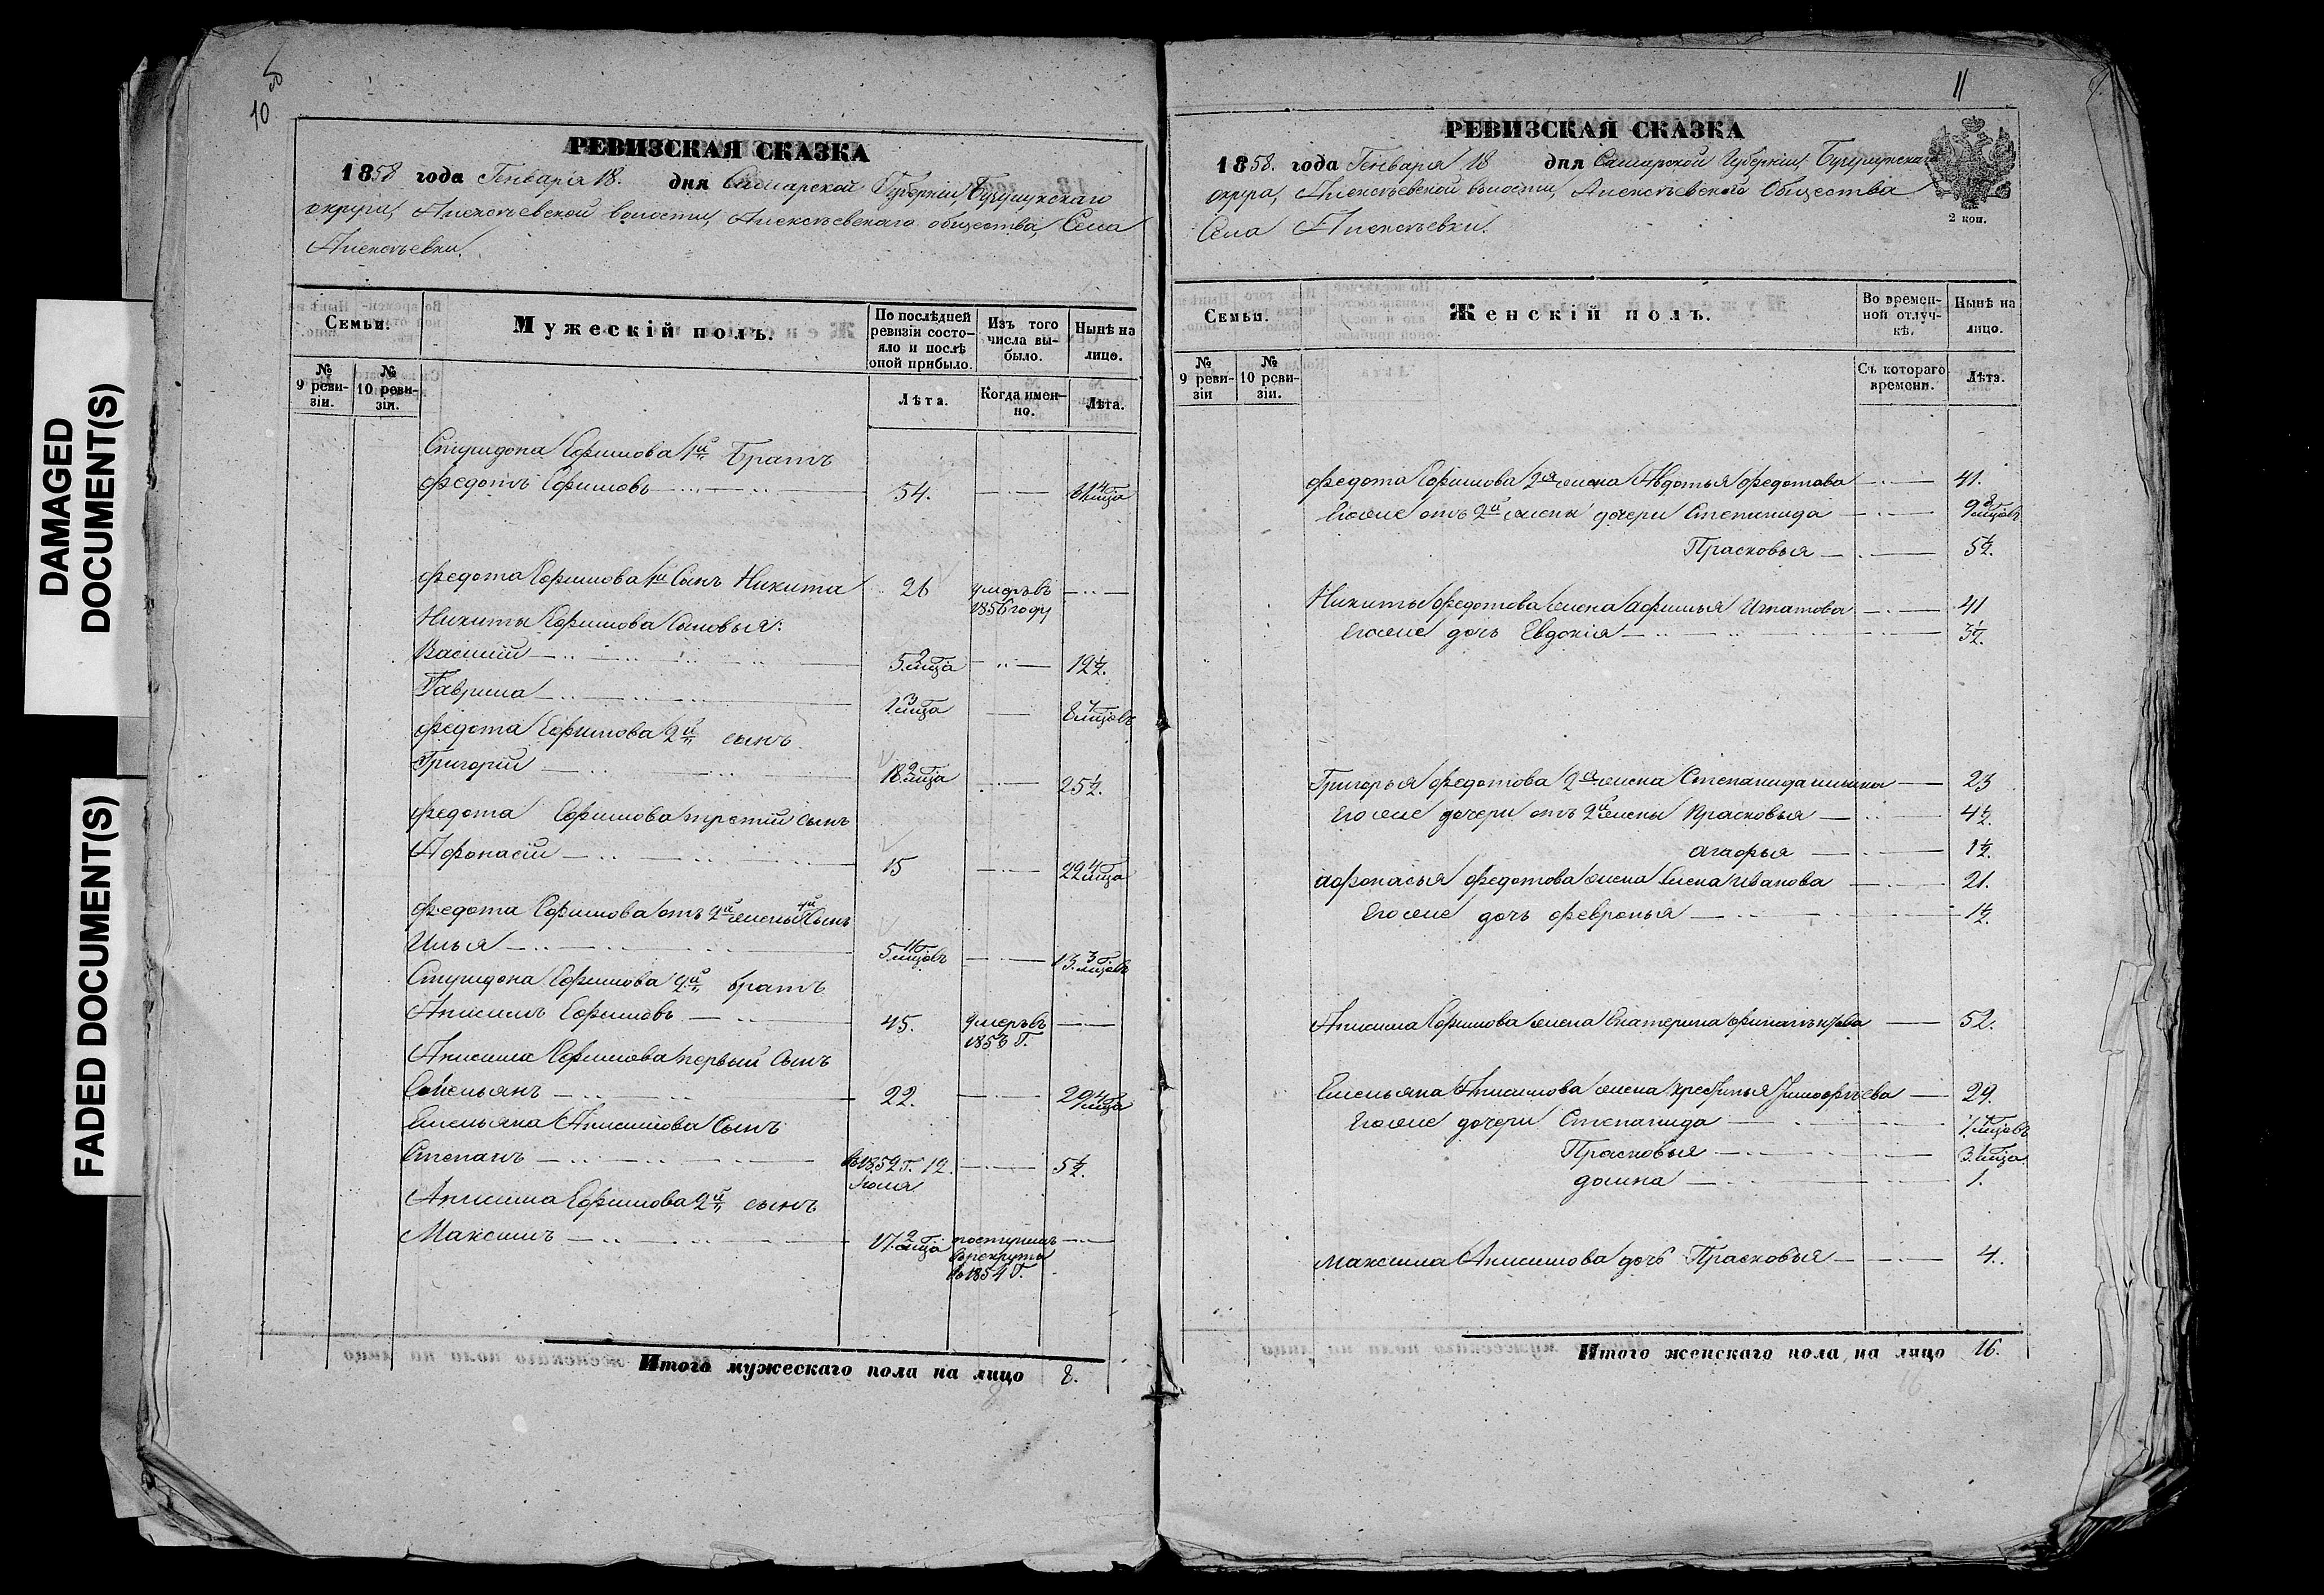 DAMAGED
DOCUMENT(S)
FADED DOCUMENT(S)
10
РЕВИЗСКАЯ СКАЗКА
1858 года Генваря 18. дня Самарской Губерніи, Бузулукскаго
округа, Алексѣевской волости, Алексѣевскаго общества, Села
Алексѣевки.
Семьи.
Мужескій полъ.
По послѣдней ревизіи состояло и послѣ оной прибыло.
Изъ того числа выбыло.
Нынѣ на лицо.
№ 9 ревизіи.
№ 10 ревизіи.
Лѣта.
Когда именно.
Лѣта.
Спиридона Ефимова 1й Братъ
Федотъ Ефимовъ 54.
Федота Ефимова 1й Сынъ Никита 26 умеръ въ
1856 году
Никиты Ефимова Сыновья:
Василій 12½.
Гаврила
Федота Ефимова 2й сынъ
Григорій 25½.
Федота Ефимова третій сынъ
Афонасій 15
Федота Ефимова отъ 2й жены 4й Сынъ
Илья
Спиридона Ефимова 2й братъ
Анисимъ Ефимовъ 45. умеръ въ
185 Г.
Анисима Ефимова первый Сынъ
Емельянъ 22.
Емельяна Анисимова Сынъ
Степанъ въ 1852 Г. 12 5½.
Іюля
Анисима Ефимова 2й сынъ
Максимъ поступилъ
въ рекруты
въ 1854 Г.
Итого мужескаго пола на лицо 8.
11
РЕВИЗСКАЯ СКАЗКА
1858. года Генваря 18 дня Самарской Губерніи Бузулукскаго
округа, Алексѣевской волости, Алексѣевскаго Общества
Села Алексѣевки.
2 коп.
Семьи.
Женскій полъ.
Во временной отлучкѣ.
Нынѣ на лицо.
№ 9 ревизіи
№ 10 ревизіи.
Съ котораго времени.
Лѣта.
Федота Ефимова 2я жена Авдотья Федотова 41.
Егоже отъ 2й жены дочери Степанида
Прасковья 5½.
Никиты Федотова жена Афимья Игнатова 41
Егоже дочь Евдокія 3½.
Григорья Федотова 2я жена Степанида Ильина 23
Егоже дочери отъ 2й жены Прасковья 4½.
Агафья 1½.
Афонасья Федотова жена Елена Иванова 21.
Егоже дочь Февронья 1½.
Анисима Ефимова жена Екатерина 52.
Емельяна Анисимова жена Хрестинья Тимофѣева 29.
Егоже дочери Степанида
Прасковья
Домна 1.
Максима Анисимова дочь Прасковья 4.
Итого женскаго пола на лицо 16.
16